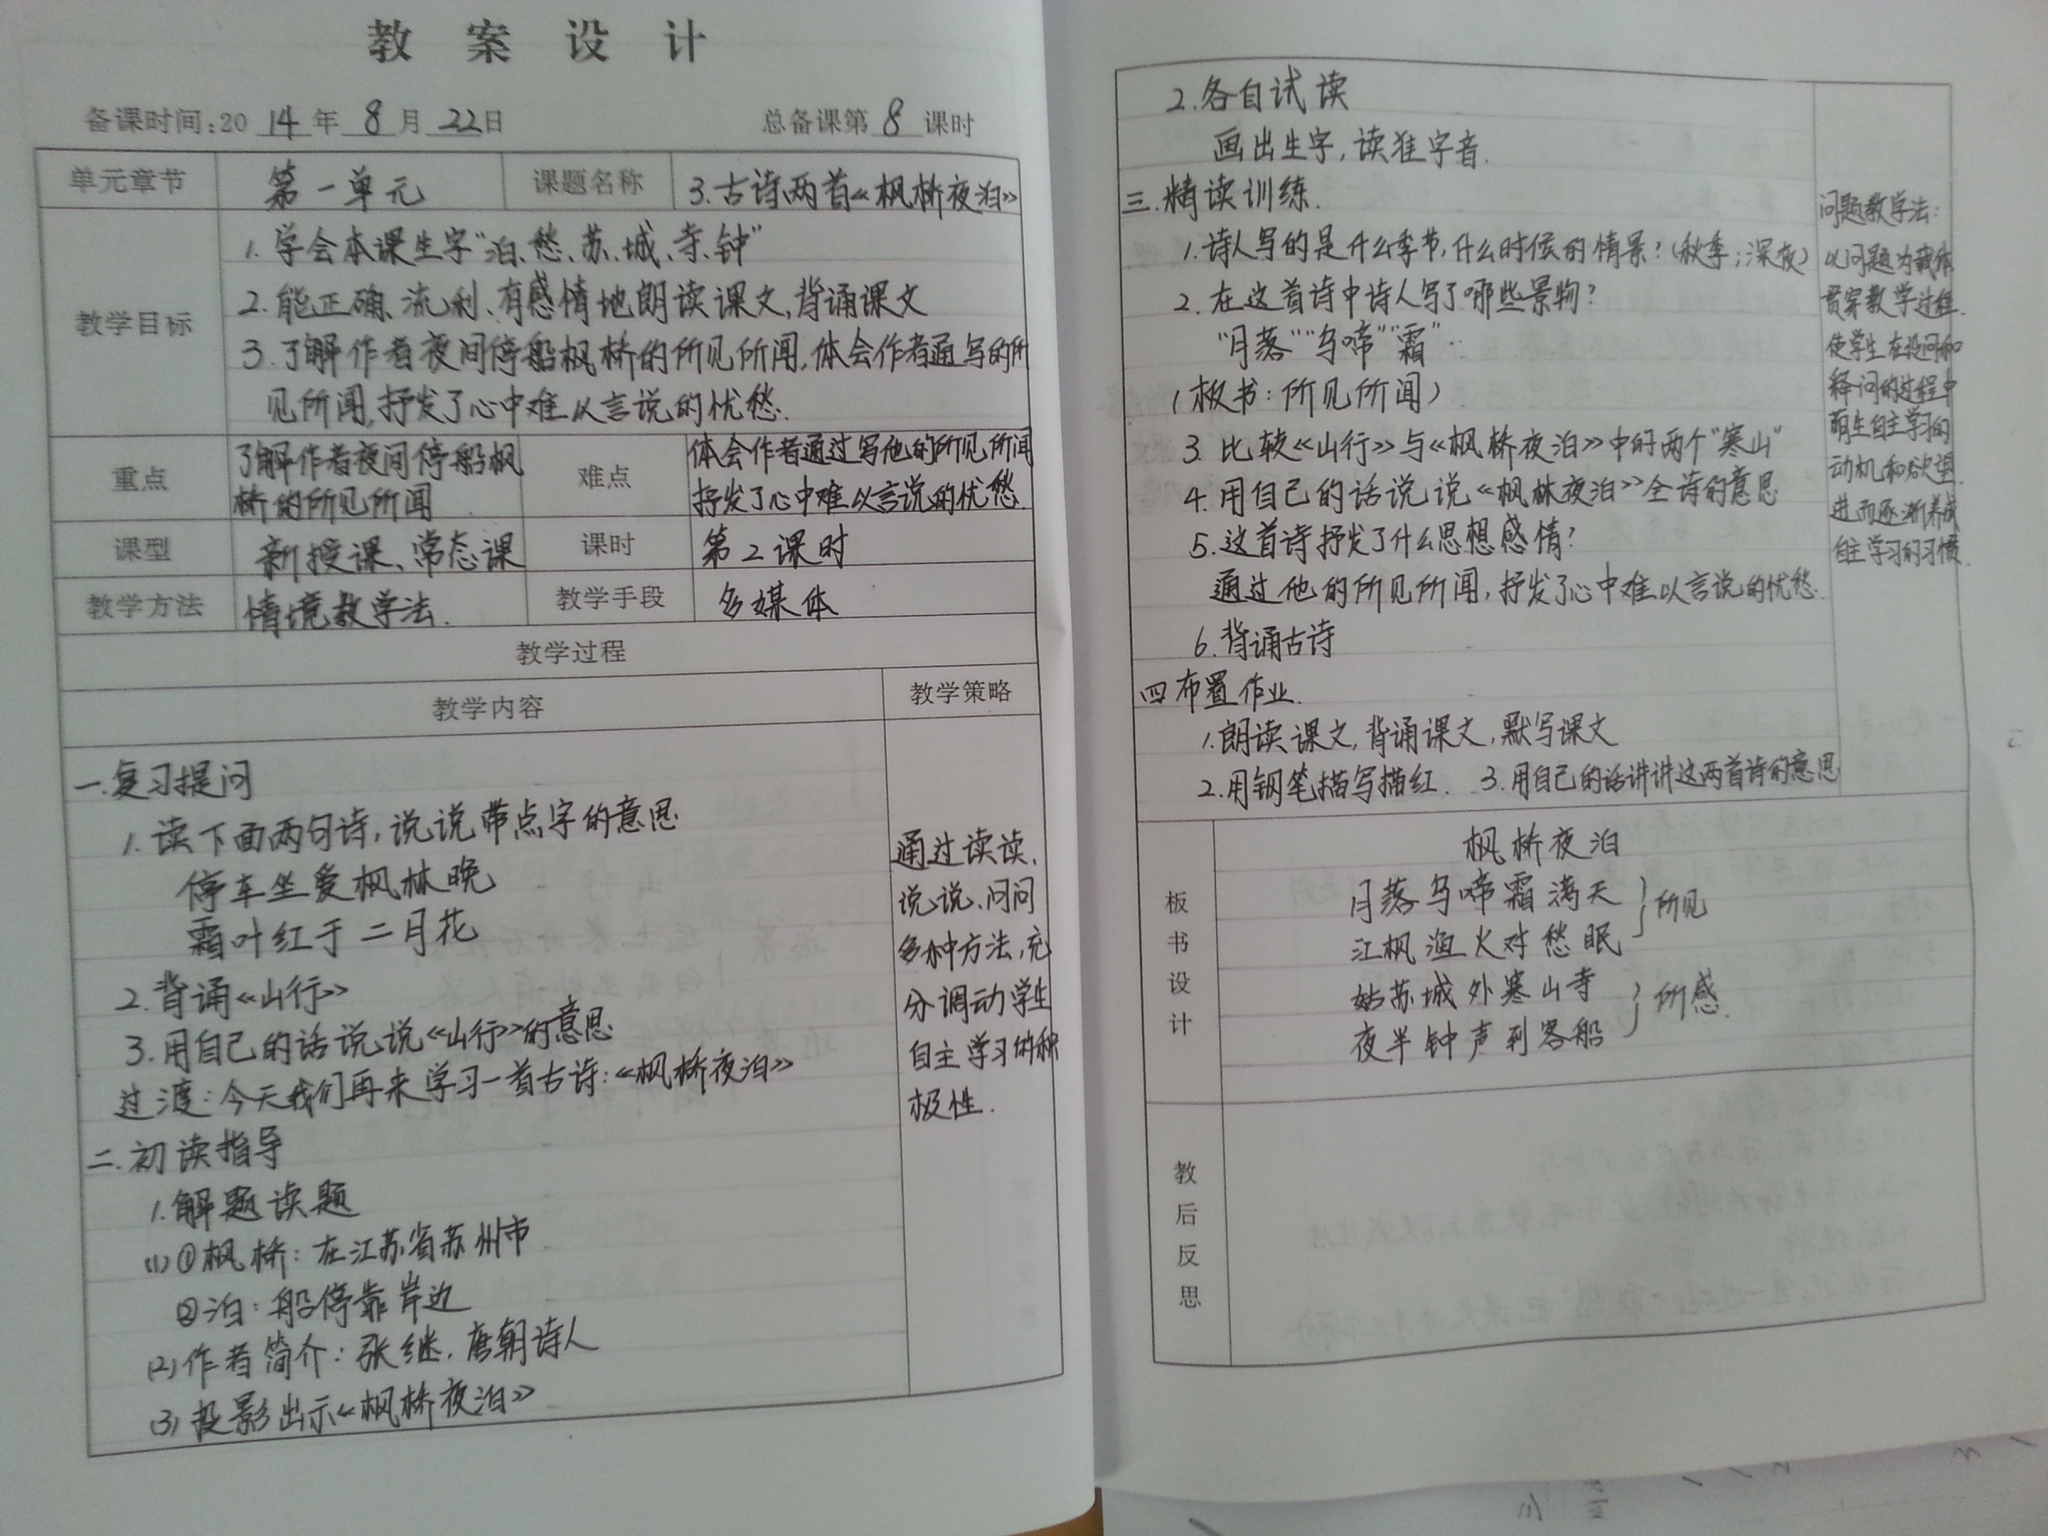 教案设计
备课时间:2014年8月22日 总备课第8课时
单元章节 第一单元 课题名称 3.古诗两首《枫桥夜泊》
教学目标
1.学会本课生字"泊、愁、苏、城、寺、钟"
2.能正确、流利、有感情地朗读课文,背诵课文
3.了解作者夜间停船枫桥的所见所闻,体会作者通写的所
见所闻,抒发了心中难以言说的忧愁.
重点 了解作者夜间停船枫
桥的所见所闻
难点 体会作者通过写他的所见所闻
抒发了心中难以言说的忧愁.
课型 新授课、常态课 课时 第2课时
教学方法 情境教学法. 教学手段 多媒体
教学过程
教学内容 教学策略
一.复习提问
1.读下面两句诗,说说带点字的意思
停车坐爱枫林晚
霜叶红于二月花
2.背诵《山行》
3.用自己的话说说《山行》的意思
过渡:今天我们再来学习一首古诗:《枫桥夜泊》
二.初读指导
1.解题读题
(1)①枫桥:在江苏省苏州市
②泊:船停靠岸边
(2)作者简介:张继.唐朝诗人
(3)投影出示《枫桥夜泊》
通过读读、
说说、问问
多种方法,充
分调动学生
自主学习的积
极性.
2.各自试读
画出生字,读准字音.
三.精读训练.
1.诗人写的是什么季节,什么时候的情景?(秋季;深夜)
2.在这首诗中诗人写了哪些景物?
"月落""乌啼""霜"..
(板书:所见所闻)
3.比较《山行》与《枫桥夜泊》中的两个"寒山"
4.用自己的话说说《枫林夜泊》全诗的意思
5.这首诗抒发了什么思想感情?
通过他的所见所闻,抒发了心中难以言说的忧愁.
6.背诵古诗
四布置作业.
1.朗读课文,背诵课文,默写课文
2.用钢笔描写描红. 3.用自己的话讲讲这两首诗的意思
问题教学法:
以问题为载体
贯穿教学过程.
使学生在设问和
释问的过程中
萌生自主学习的
动机和欲望.
进而逐渐养成
自主学习的习惯.
板书设计
枫桥夜泊
月落乌啼霜满天
江枫渔火对愁眠
所见
姑苏城外寒山寺
夜半钟声到客船
所感.
教后反思